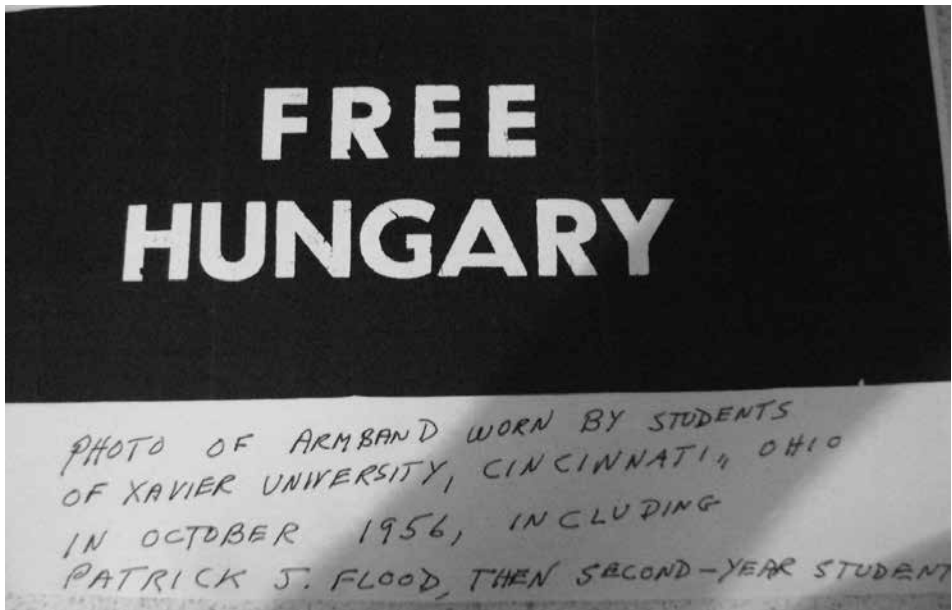 FREE
HUNGARY
PHOTO OF ARMBAND WORN BY STUDENTS
OF XAVIER UNIVERSITY, CINCINNATI, OHIO
IN OCTOBER 1956, INCLUDING
PATRICK J. FLOOD, THEN SECOND-YEAR STUDENT